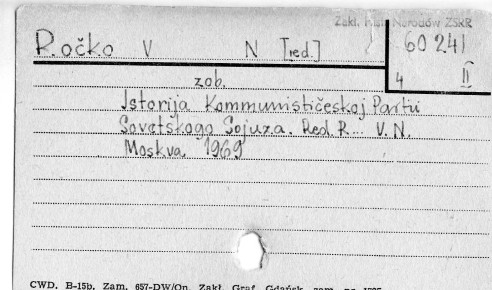 Zakł. Hist. Narodów ZSRR
Ročko V N [red.] 60 241
4 II
zob.
Istorija Kommunističeskoj Partii
Sovetskogo Sojuza. Red. R... V. N.
Moskva 1969
CWD. B-15b. Zam. 657-DW/On. Zakł. Graf. Gdańsk, zam. nr